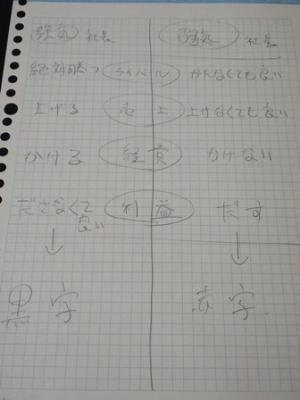 強気 社長 強気 社長
絶対勝つ ライバル かたなくても良い
上げる 売上 上げなくても良い
かける 経費 かけない
ださなくて 利益 だす
良い
↓ ↓
黒字 赤字